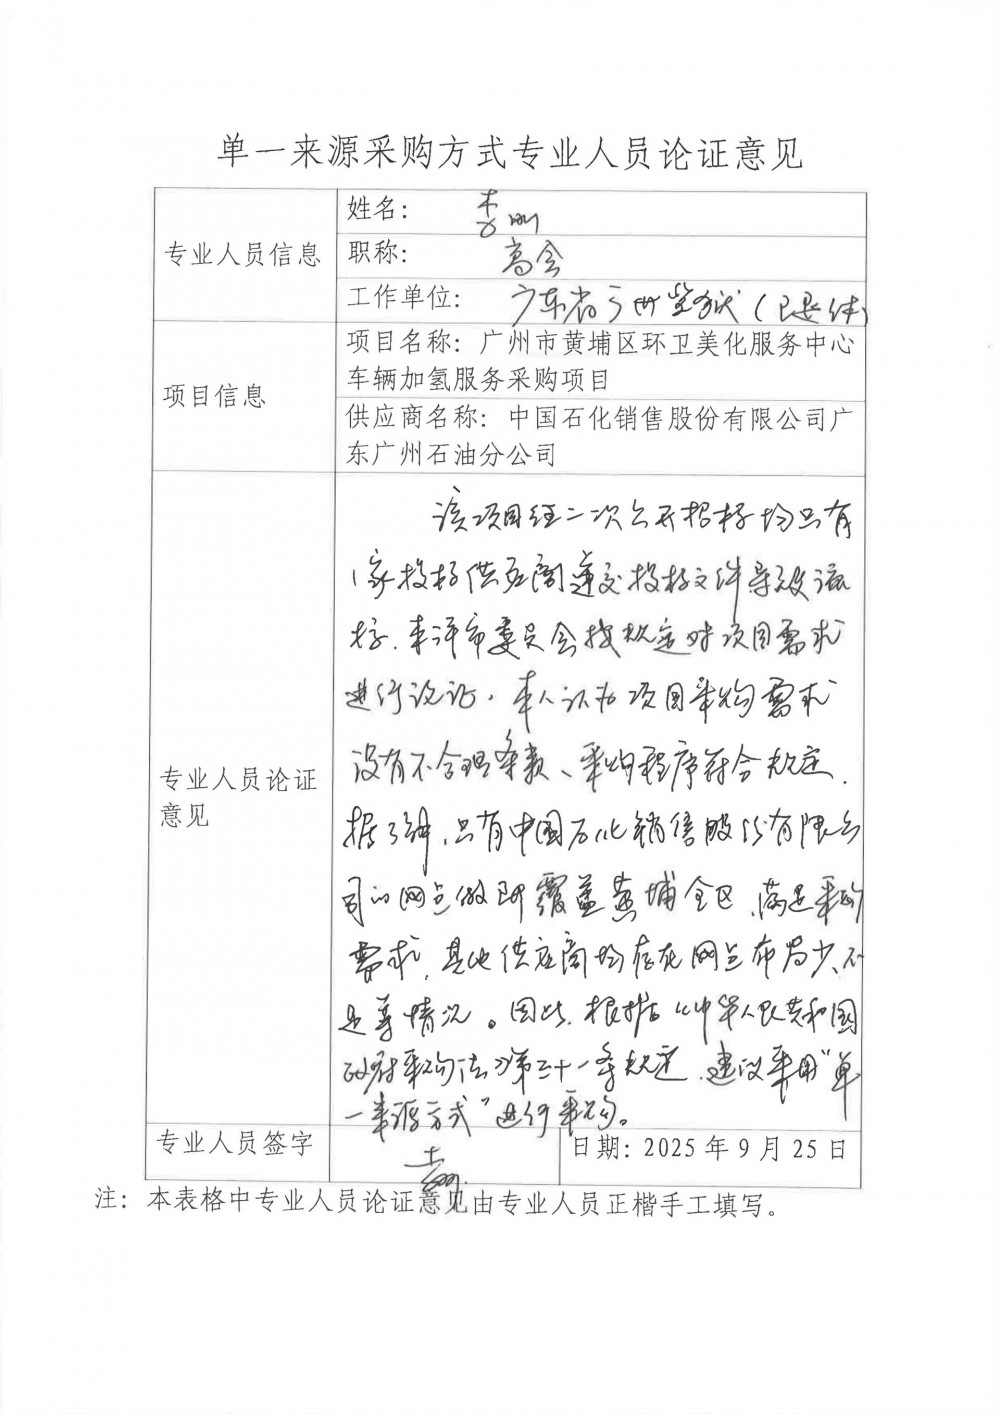 单一来源采购方式专业人员论证意见
专业人员信息
姓名：李
职称：高会
工作单位：广东省监狱（已退休）
项目信息
项目名称：广州市黄埔区环卫美化服务中心
车辆加氢服务采购项目
供应商名称：中国石化销售股份有限公司广
东广州石油分公司
专业人员论证
意见
该项目经二次公开招标均只有
1家投标供应商递交投标文件导致流
标，评委员会按规定对项目需求
进行论证。本人认为项目采购需求
没有不合理条款、采购程序符合规定。
据了解，只有中国石化销售股份有限公
司的网点做到覆盖黄埔全区，满足采购
需求，其他供应商均存在网点布局少、不
足等情况。因此，根据《中华人民共和国
政府采购法》第三十一条规定，建议采用“单
一来源方式”进行采购。
专业人员签字
日期：2025年9月25日
注：本表格中专业人员论证意见由专业人员正楷手工填写。